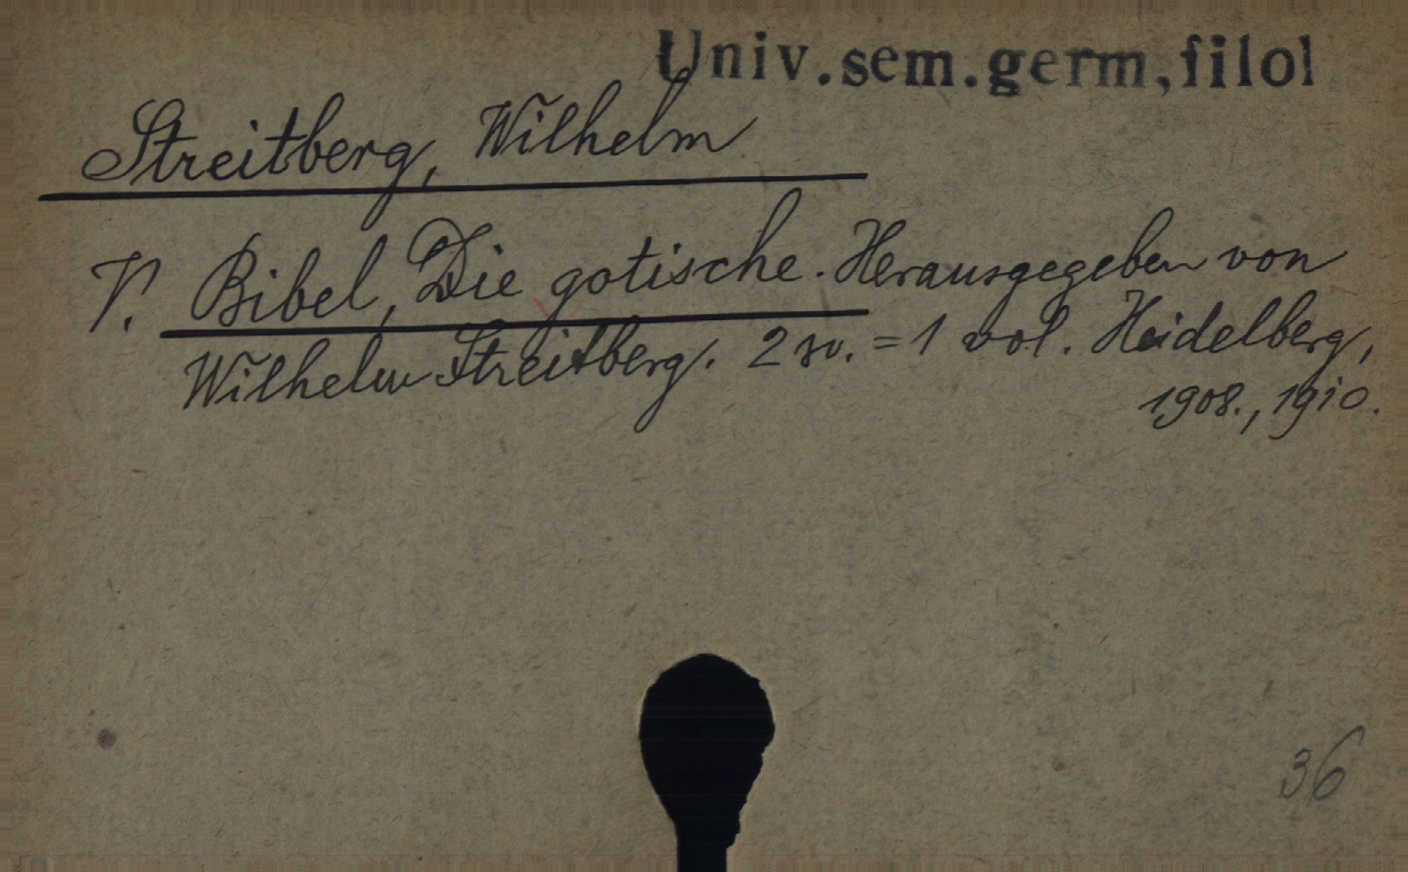 Univ.sem.germ,filol
Streitberg, Wilhelm
V. Bibel, Die gotische. Herausgegeben von
Wilhelm Streitberg. 2 sv. = 1 vol. Heidelberg,
1908., 1910.
36